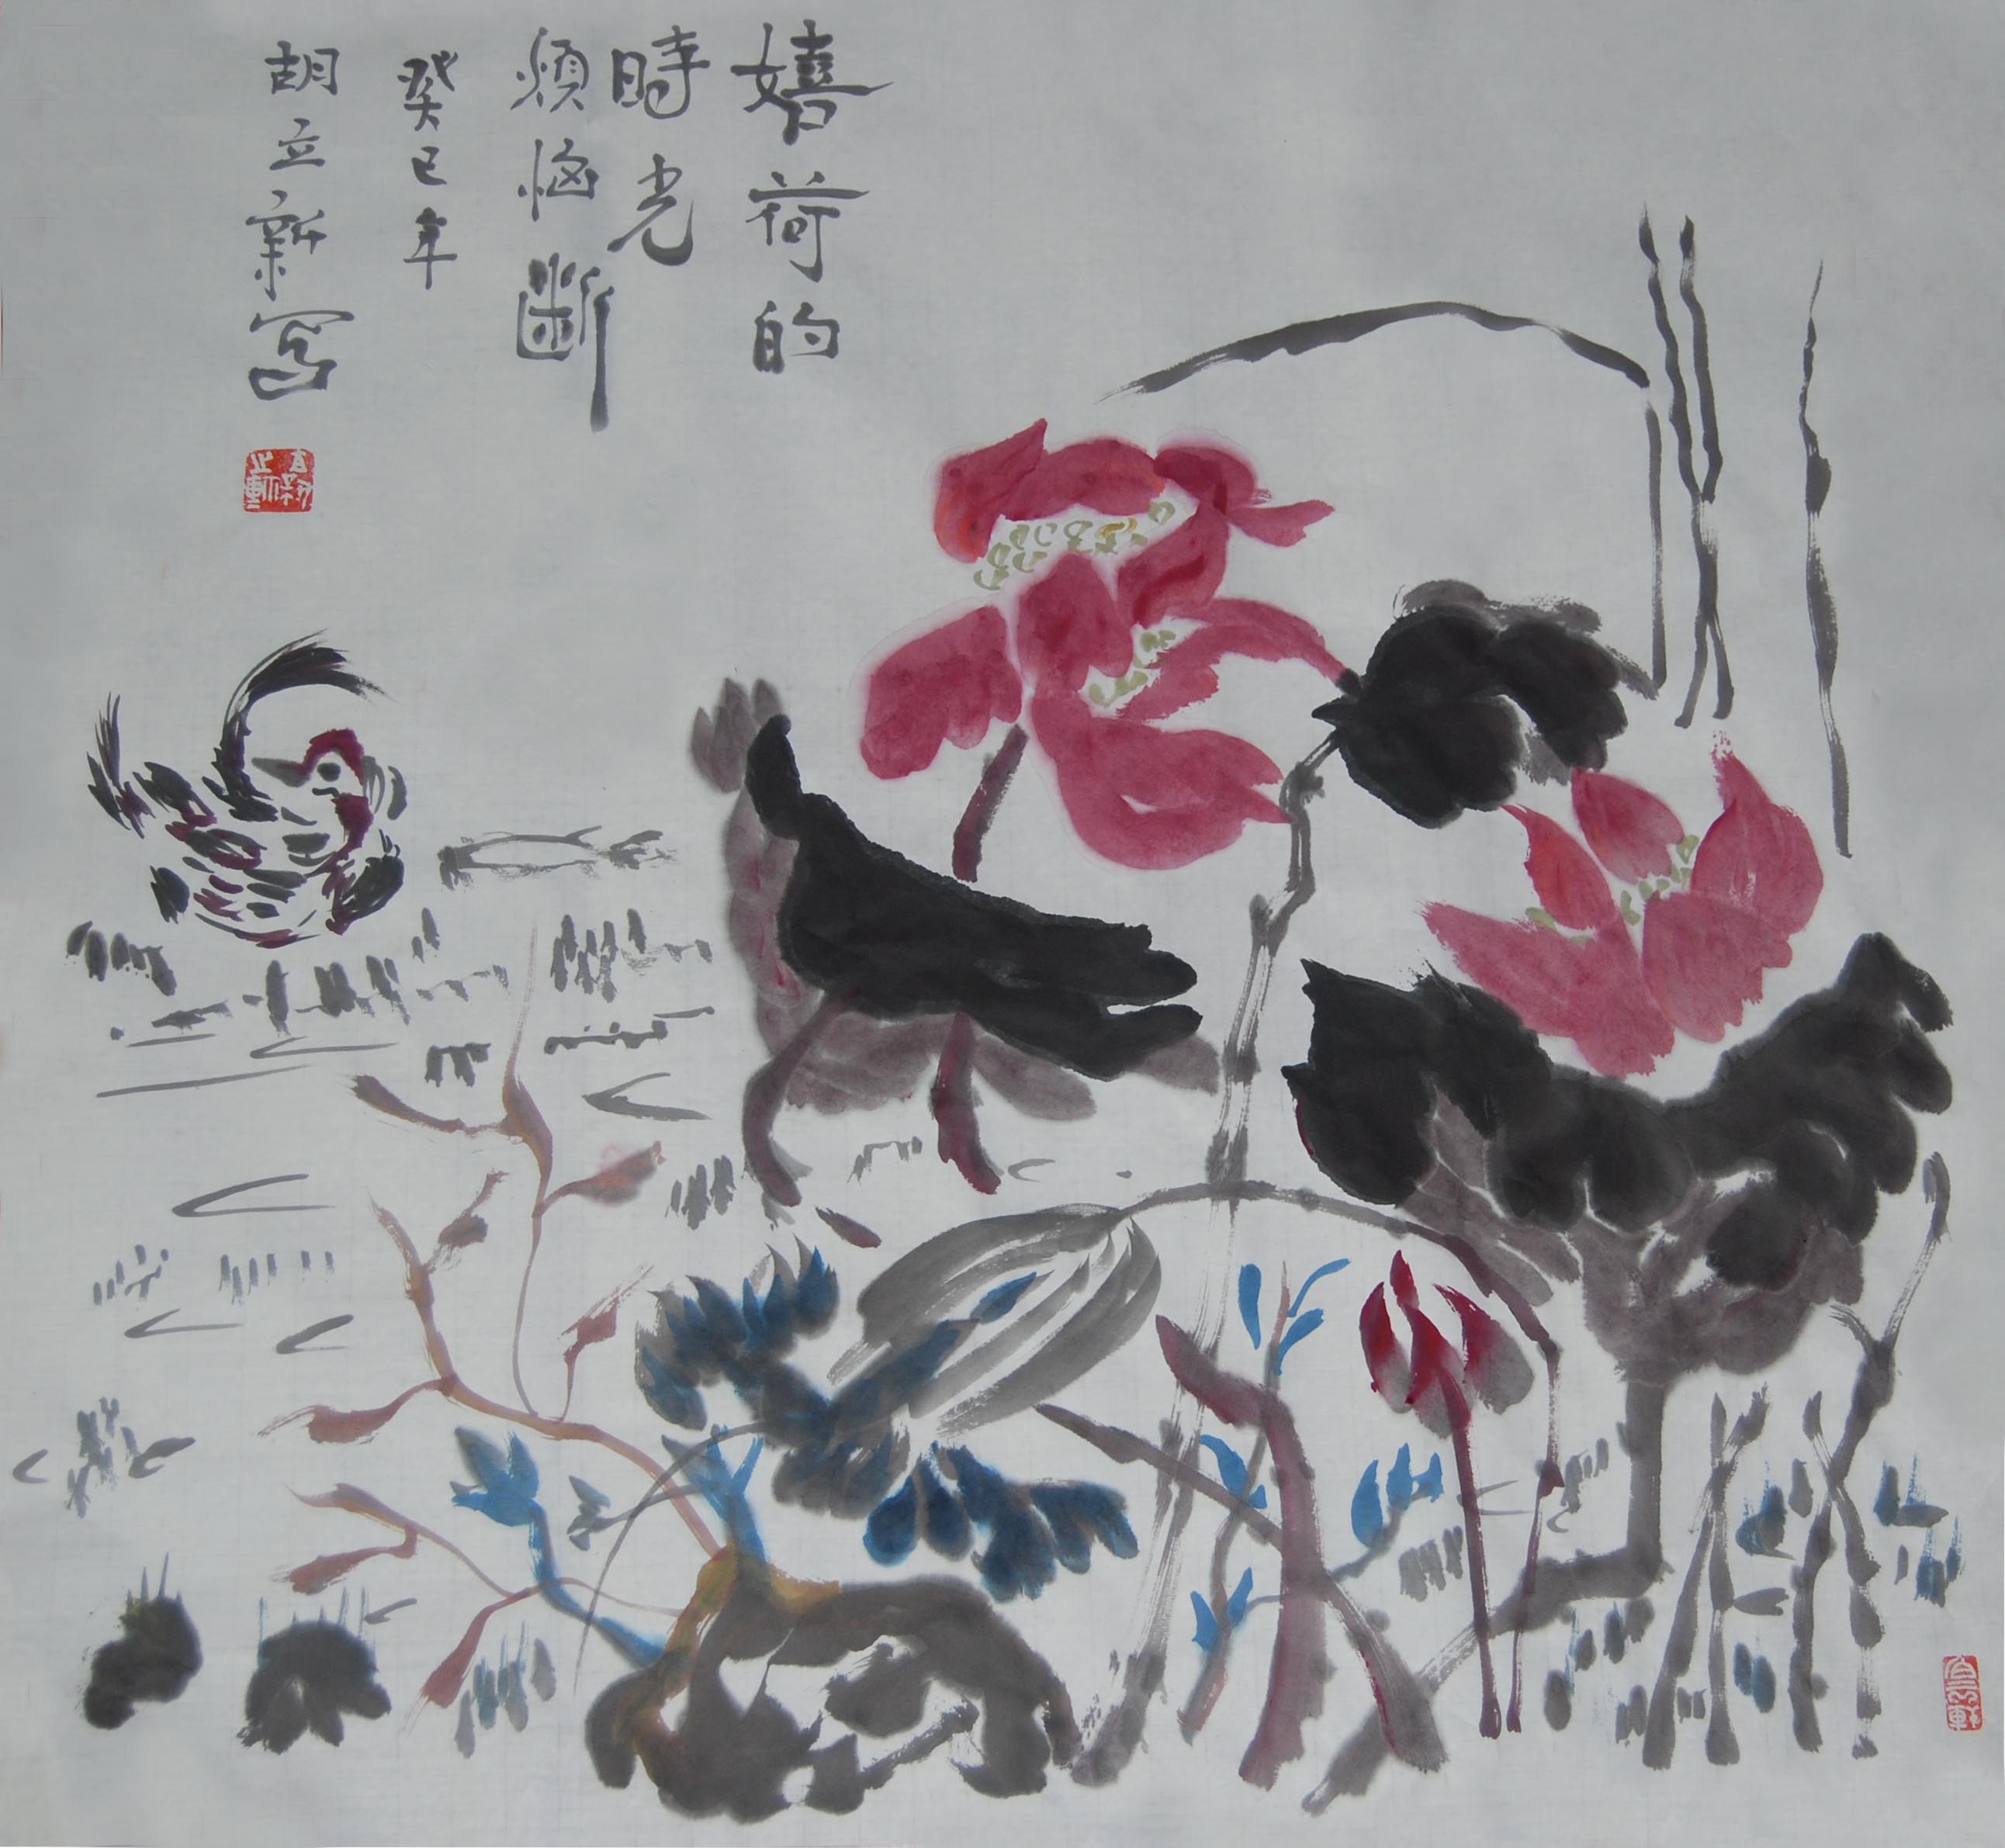 嬉荷的
時光
煩恼斷
癸巳年
胡立新写